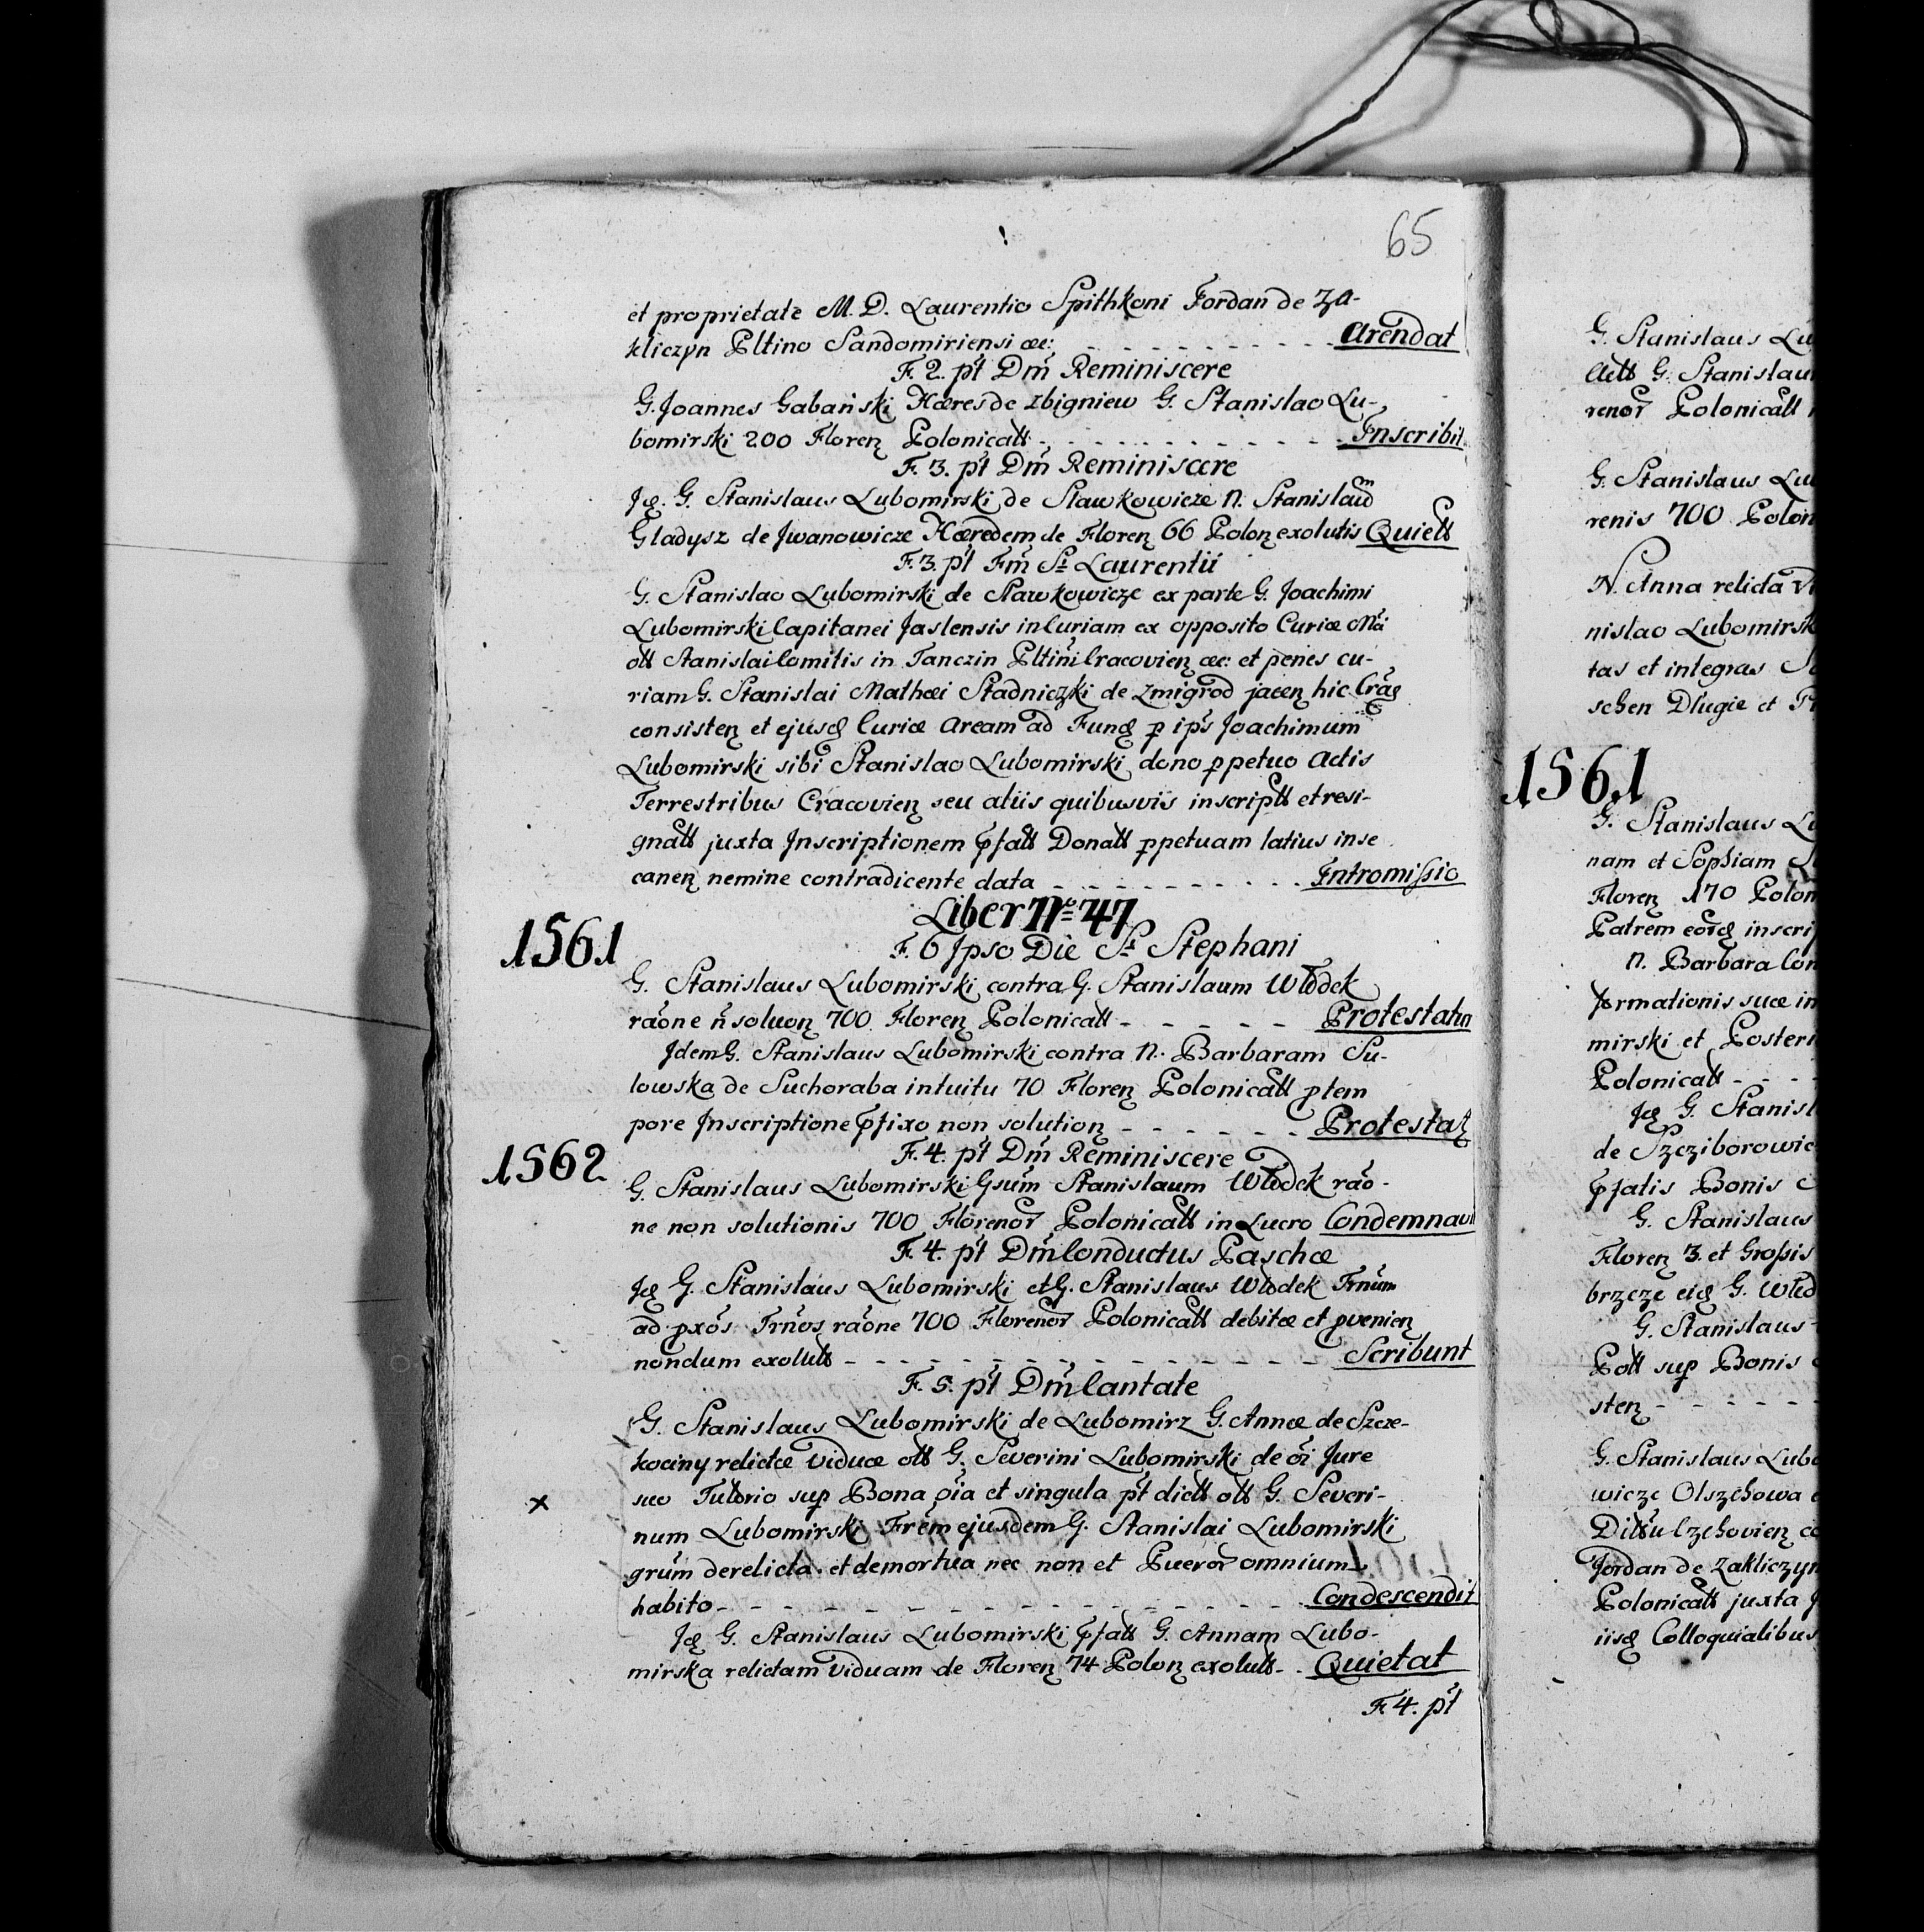 65
et proprietate M. D. Laurentio Spithkoni Jordan de Za-
kliczyn Pltino Sandomiriensi &c: - - - - - - - - - - Arendat
F. 2. pt Dm Reminiscere
G. Joannes Gabański Hæres de Zbigniew G. Stanislao Lu-
bomirski 200 Floren Polonicall - - - - - - - - - - - Inscribit
F. 3. pt Dm Reminiscere
Jd. G. Stanislaus Lubomirski de Sławkowicze N. Stanislaum
Gladysz de Jwanowicze Hæredem de Floren 66 Polon exolutis Quiett
F. 3. pt Fm St Laurentii
G. Stanislao Lubomirski de Sławkowicze ex parte G. Joachimi
Lubomirski Capitanei Jaslensis in Curiam ex opposito Curiæ Mci
oll Stanislai Comitis in Tanczin Pltini Cracovien &c: et penes cu-
riam G. Stanislai Mathæi Stadniczki de Zmigrod jacen hic Crac
consisten et ejusd Curiæ Aream ad Fund p ips Joachimum
Lubomirski sibi Stanislao Lubomirski dono ppetuo Actis
Terrestribus Cracovien seu aliis quibusvis inscriptt et resi-
gnatt juxta Inscriptionem pfatt Donatt ppetuam latius in se
canen nemine contradicente data - - - - - - - - - Intromissio
Liber No 47
1561
F. 6 Ipso Die St Stephani
G. Stanislaus Lubomirski contra G. Stanislaum Włodek
raone n soluon 700 Floren Polonicall - - - - - Protestatn
Idem G. Stanislaus Lubomirski contra N. Barbaram Su-
lowska de Suchoraba intuitu 70 Floren Polonicall p tem
pore Inscriptione pfixo non solution - - - - - - Protestat
1562
F. 4. pt Dm Reminiscere
G. Stanislaus Lubomirski Gsum Stanislaum Włodek rao-
ne non solutionis 700 Florenor Polonicall in Lucro Condemnavit
F. 4. pt Dm Conductus Paschæ
Jd G. Stanislaus Lubomirski et G. Stanislaus Włodek Trnum
ad pxos Trnos raone 700 Florenor Polonicall debitæ et pvenien
nondum exolutt - - - - - - - - - - - - - - - - Scribunt
F. 5. pt Dm Cantate
G. Stanislaus Lubomirski de Lubomirz G. Annæ de Szcze-
kociny relictæ Viduæ oll G. Severini Lubomirski de oi Jure
x
suo Tutorio sup Bona oia et singula pt dictt oll G. Severi-
num Lubomirski Frem ejusdem G. Stanislai Lubomirski
grum derelicta et demortua nec non et Pueror omnium
habito - - - - - - - - - - - - - - - - - Condescendit
Jd G. Stanislaus Lubomirski pfatt G. Annam Lubo-
mirska relictam Viduam de Floren 74 Polon exolutt - . Quietat
F. 4. pt
G. Stanislaus Lu
G. Stanislau
renor Polonicall
G. Stanislaus Lu
renis 700 Polon
N. Anna relicta
nislao Lubomirsk
tas et integras
schen Długie et
1561
G. Stanislaus Lu
nam et Sophiam
Floren 170 Polon
Patrem inscri
N. Barbara Con
formationis suæ in
mirski et Posteri
Polonicall - - -
Jd G. Stanisl
de Szcziborowic
pfatis Bonis
G. Stanislaus
Floren 3. et Grossis
brzeze G. Wlod
G. Stanislaus
sup Bonis
sten - - - - -
G. Stanislaus Lubo
wicze Olszchowa
Jordan de Zakliczyn
Polonicall juxta
iisd Colloquialibus